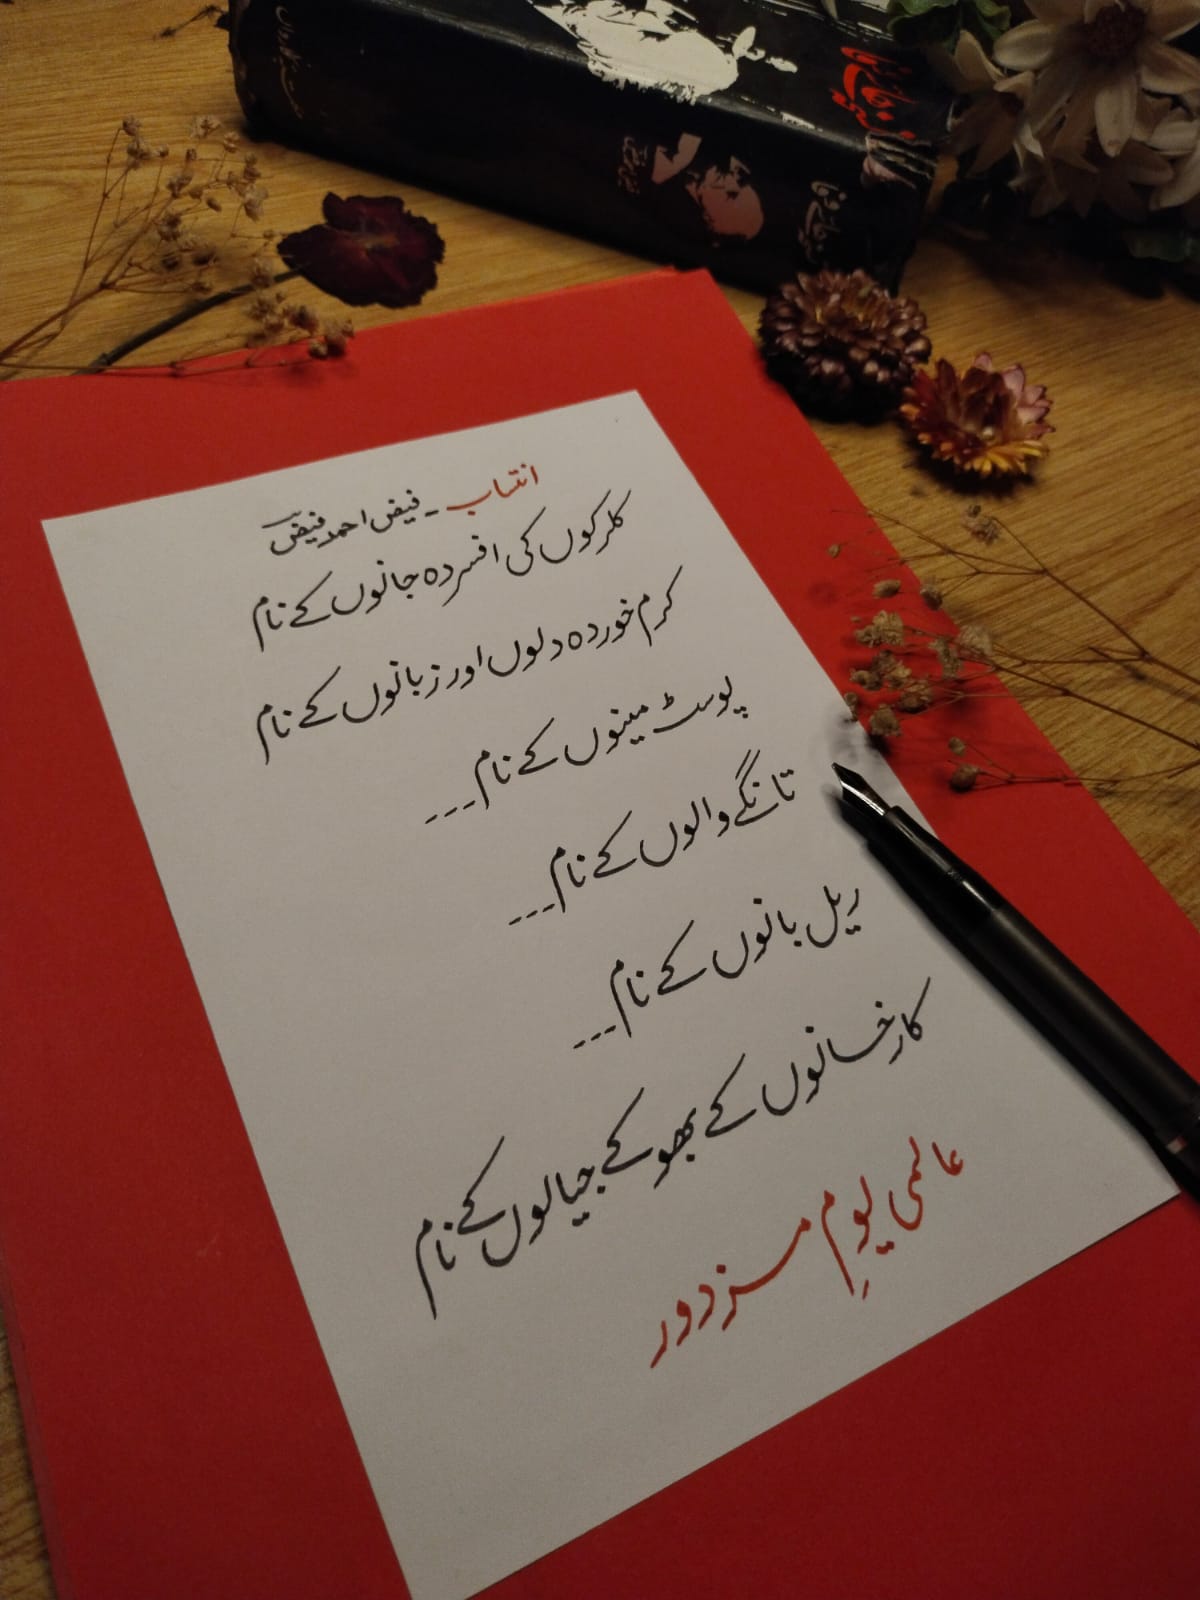 انتساب - فیض احمد فیض
کلرکوں کی افسردہ جانوں کے نام
کرم خوردہ دلوں اور زبانوں کے نام
پوسٹ مینوں کے نام ---
تانگے والوں کے نام ---
ریل بانوں کے نام ---
کارخانوں کے بھوکے جیالوں کے نام
عالمی یومِ مزدور